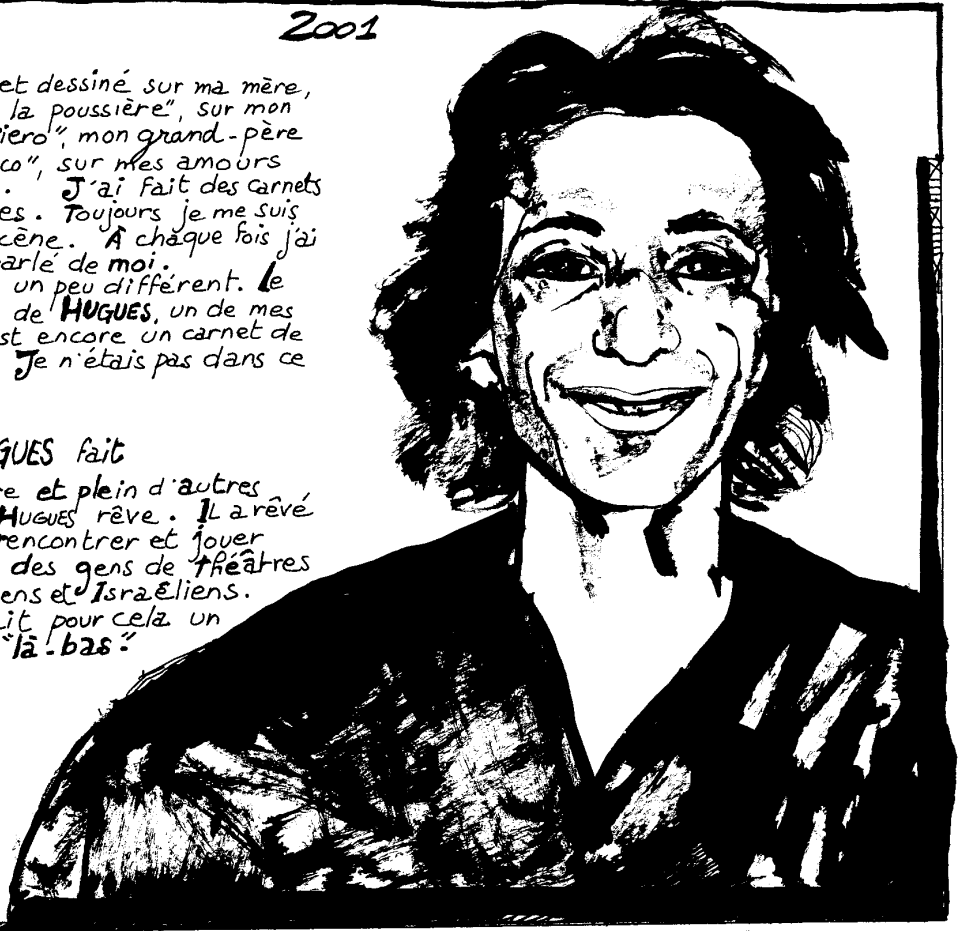 2001
et dessiné sur ma mère,
la poussière", sur mon
iero", mon grand-père
co", sur mes amours
. J'ai fait des carnets
es. Toujours je me suis
cène. À chaque fois j'ai
arlé de moi.
un peu différent. Le
de HUGUES, un de mes
st encore un carnet de
Je n'étais pas dans ce
GUES fait
re et plein d'autres
HUGUES rêve. IL a rêvé
rencontrer et jouer
des gens de théâtres
ens et Israëliens.
it pour cela un
"là-bas"